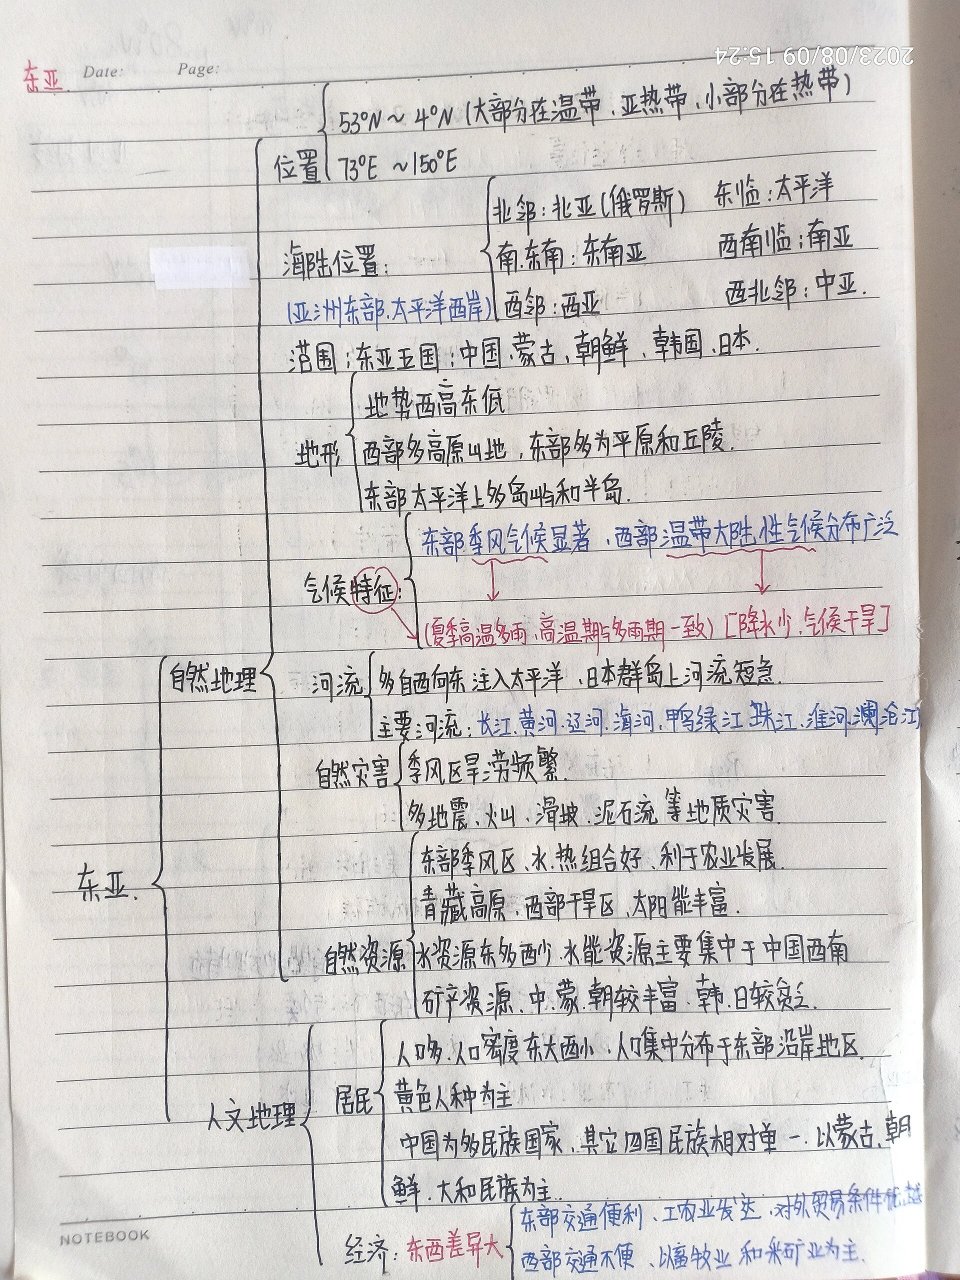 2023/08/09 15:24
东亚 Date: Page:
53°N ~ 4°N (大部分在温带、亚热带、小部分在热带)
位置
73°E ~150°E
北邻:北亚(俄罗斯) 东临:太平洋
海陆位置: 南、东南:东南亚 西南临:南亚
(亚洲东部、太平洋西岸) 西邻:西亚 西北邻:中亚.
范围:东亚五国:中国、蒙古、朝鲜、韩国、日本.
地势西高东低
地形 西部多高原山地,东部多为平原和丘陵.
东部太平洋上多岛屿和半岛.
东部季风气候显著、西部温带大陆性气候分布广泛
气候特征:
(夏季高温多雨、高温期与多雨期一致) [降水少、气候干旱]
自然地理
河流 多自西向东注入太平洋、日本群岛上河流短急.
主要河流:长江、黄河、辽河、海河、鸭绿江、珠江、淮河、澜沧江
自然灾害 季风区旱涝频繁.
多地震、火山、滑坡、泥石流等地质灾害.
东部季风区、水、热组合好、利于农业发展.
东亚.
青藏高原、西部干旱区、太阳能丰富.
自然资源 水资源东多西少、水能资源主要集中于中国西南
矿产资源、中、蒙、朝较丰富、韩、日较贫乏.
人口多、人口密度东大西小、人口集中分布于东部沿岸地区.
人文地理 居民 黄色人种为主
中国为多民族国家、其它四国民族相对单一、以蒙古、朝
鲜、大和民族为主.
东部交通便利、工农业发达、对外贸易条件优越
经济:东西差异大
西部交通不便、以畜牧业和采矿业为主.
NOTEBOOK